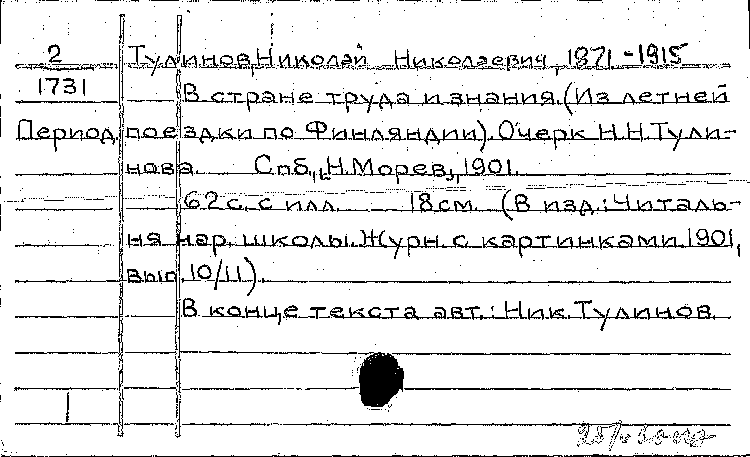 2 Тулинов, Николай Николаевич, 1871-1915
1731 В стране труда и знания. (Из летней
Период. поездки по Финляндии). Очерк Н.Н.Тули-
нова. Спб., Н.Морев, 1901.
62 с. с илл. 18 см. (В изд.: Читаль-
ня нар. школы. Журн. с картинками. 1901,
вып. 10/11).
В конце текста авт.: Ник. Тулинов.